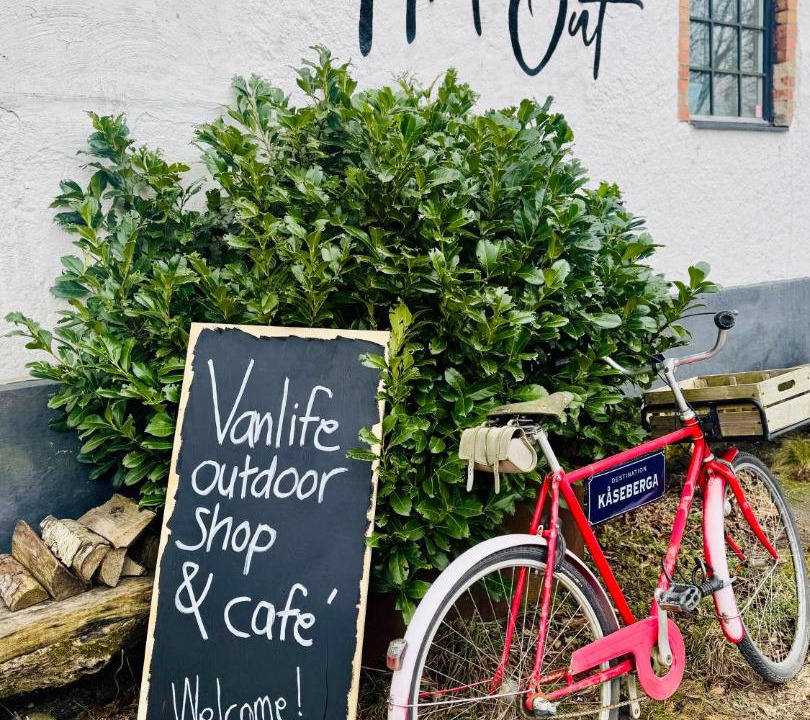 Out
Vanlife
outdoor
shop
& café
Welcome!
DESTINATION
KÅSEBERGA